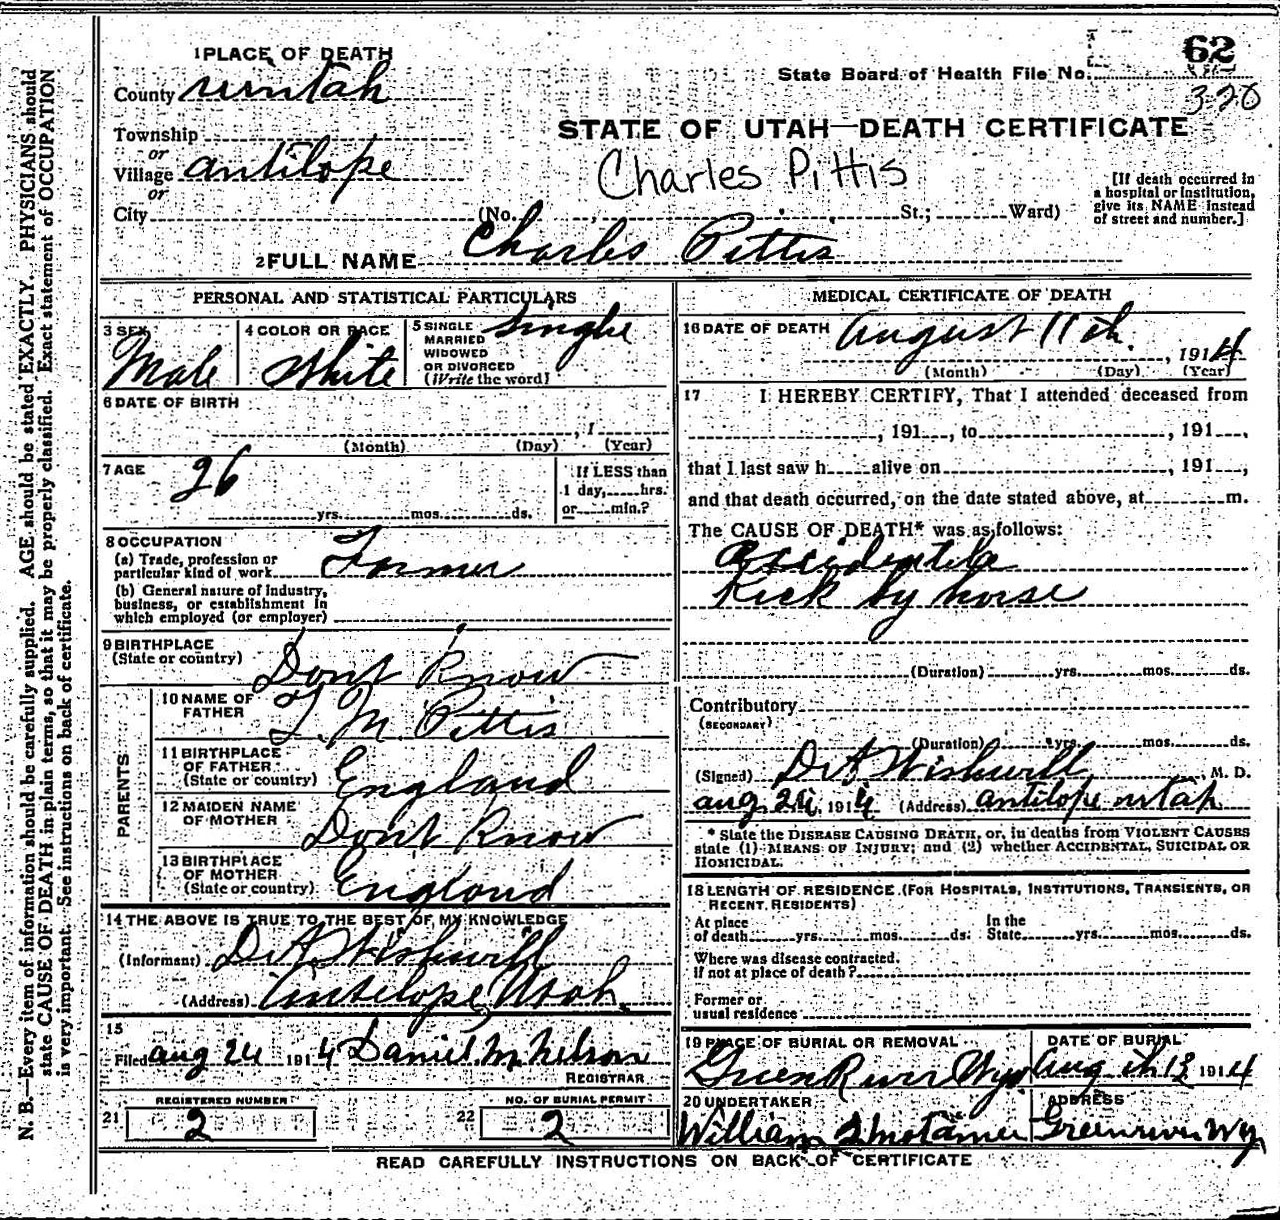 1 PLACE OF DEATH
County Uintah
Township
or
Village antilope
or
City (No. St.; Ward)
State Board of Health File No. 62
326
STATE OF UTAH—DEATH CERTIFICATE
Charles Pittis
[If death occurred in
a hospital or institution,
give its NAME instead
of street and number.]
2 FULL NAME Charles Pittis
PERSONAL AND STATISTICAL PARTICULARS
3 SEX Male
4 COLOR OR RACE White
5 SINGLE
MARRIED
WIDOWED
OR DIVORCED
(Write the word) Single
6 DATE OF BIRTH
, 1
(Month) (Day) (Year)
7 AGE 26
yrs. mos. ds.
If LESS than
1 day, hrs.
or min.?
8 OCCUPATION
(a) Trade, profession or
particular kind of work Farmer
(b) General nature of industry,
business, or establishment in
which employed (or employer)
9 BIRTHPLACE
(State or country) Dont Know
PARENTS
10 NAME OF
FATHER T. M. Pittis
11 BIRTHPLACE
OF FATHER
(State or country) England
12 MAIDEN NAME
OF MOTHER Dont Know
13 BIRTHPLACE
OF MOTHER
(State or country) England
14 THE ABOVE IS TRUE TO THE BEST OF MY KNOWLEDGE
(Informant)
(Address) Antilope, Utah.
15
Filed aug 24 1914 Daniel M Nelson
REGISTRAR
REGISTERED NUMBER
21 2
NO. OF BURIAL PERMIT
22 2
MEDICAL CERTIFICATE OF DEATH
16 DATE OF DEATH August 11th. , 1914
(Month) (Day) (Year)
17 I HEREBY CERTIFY, That I attended deceased from
, 191 , to , 191 ,
that I last saw h alive on , 191 ,
and that death occurred, on the date stated above, at m.
The CAUSE OF DEATH* was as follows:
Kick by horse
(Duration) yrs. mos. ds.
Contributory
(SECONDARY)
(Duration) yrs. mos. ds.
(Signed) M. D.
aug 24, 1914 (Address) antilope
* State the DISEASE CAUSING DEATH, or, in deaths from VIOLENT CAUSES
state (1) MEANS OF INJURY; and (2) whether ACCIDENTAL, SUICIDAL OR
HOMICIDAL.
18 LENGTH OF RESIDENCE (FOR HOSPITALS, INSTITUTIONS, TRANSIENTS, OR
RECENT RESIDENTS)
At place
of death yrs. mos. ds.
In the
State yrs. mos. ds.
Where was disease contracted,
If not at place of death?
Former or
usual residence
19 PLACE OF BURIAL OR REMOVAL
Green River Wyo
DATE OF BURIAL
Aug th 13 1914
20 UNDERTAKER
William
ADDRESS
Greenriver Wy
READ CAREFULLY INSTRUCTIONS ON BACK OF CERTIFICATE
N. B.—Every item of information should be carefully supplied. AGE should be stated EXACTLY. PHYSICIANS should
state CAUSE OF DEATH in plain terms, so that it may be properly classified. Exact statement of OCCUPATION
is very important. See instructions on back of certificate.